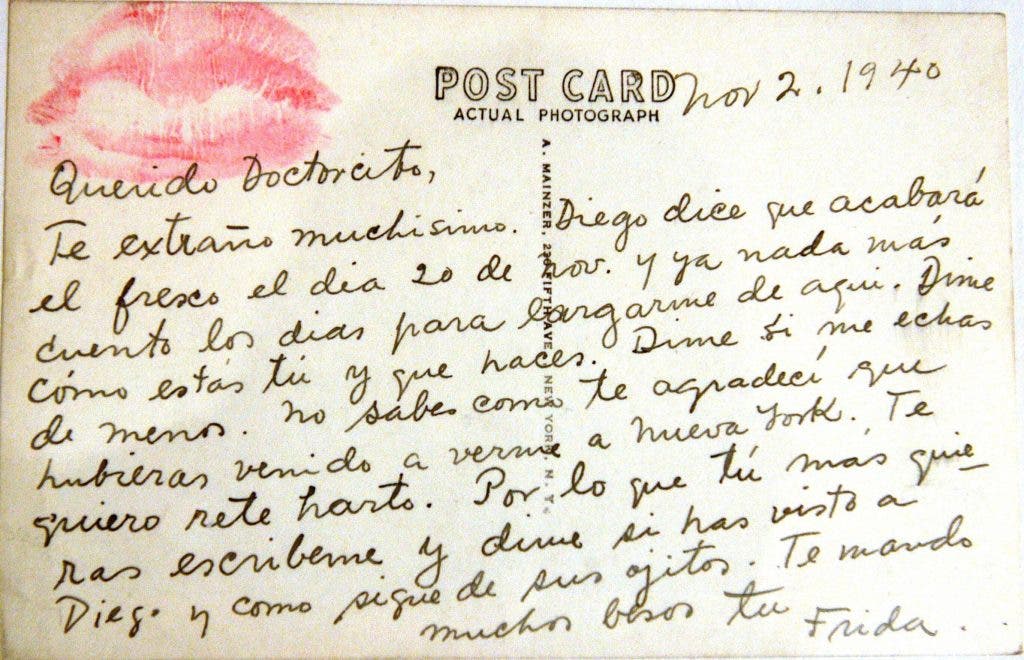 POST CARD
ACTUAL PHOTOGRAPH
Nov 2. 1940
A. MAINZER, 230 FIFTH AVE NEW YORK N. Y.
Querido Doctorcito,
Te extraño muchisimo. Diego dice que acabará
el fresco el dia 20 de Nov. y ya nada más
cuento los dias para largarme de aqui. Dime
cómo estás tú y que haces. Dime si me echas
de menos. No sabes como te agradecí que
hubieras venido a verme a Nueva York. Te
quiero rete harto. Por lo que tú más quie-
ras escribeme y dime si has visto a
Diego y como sigue de sus ojitos. Te mando
muchos besos tu
Frida.